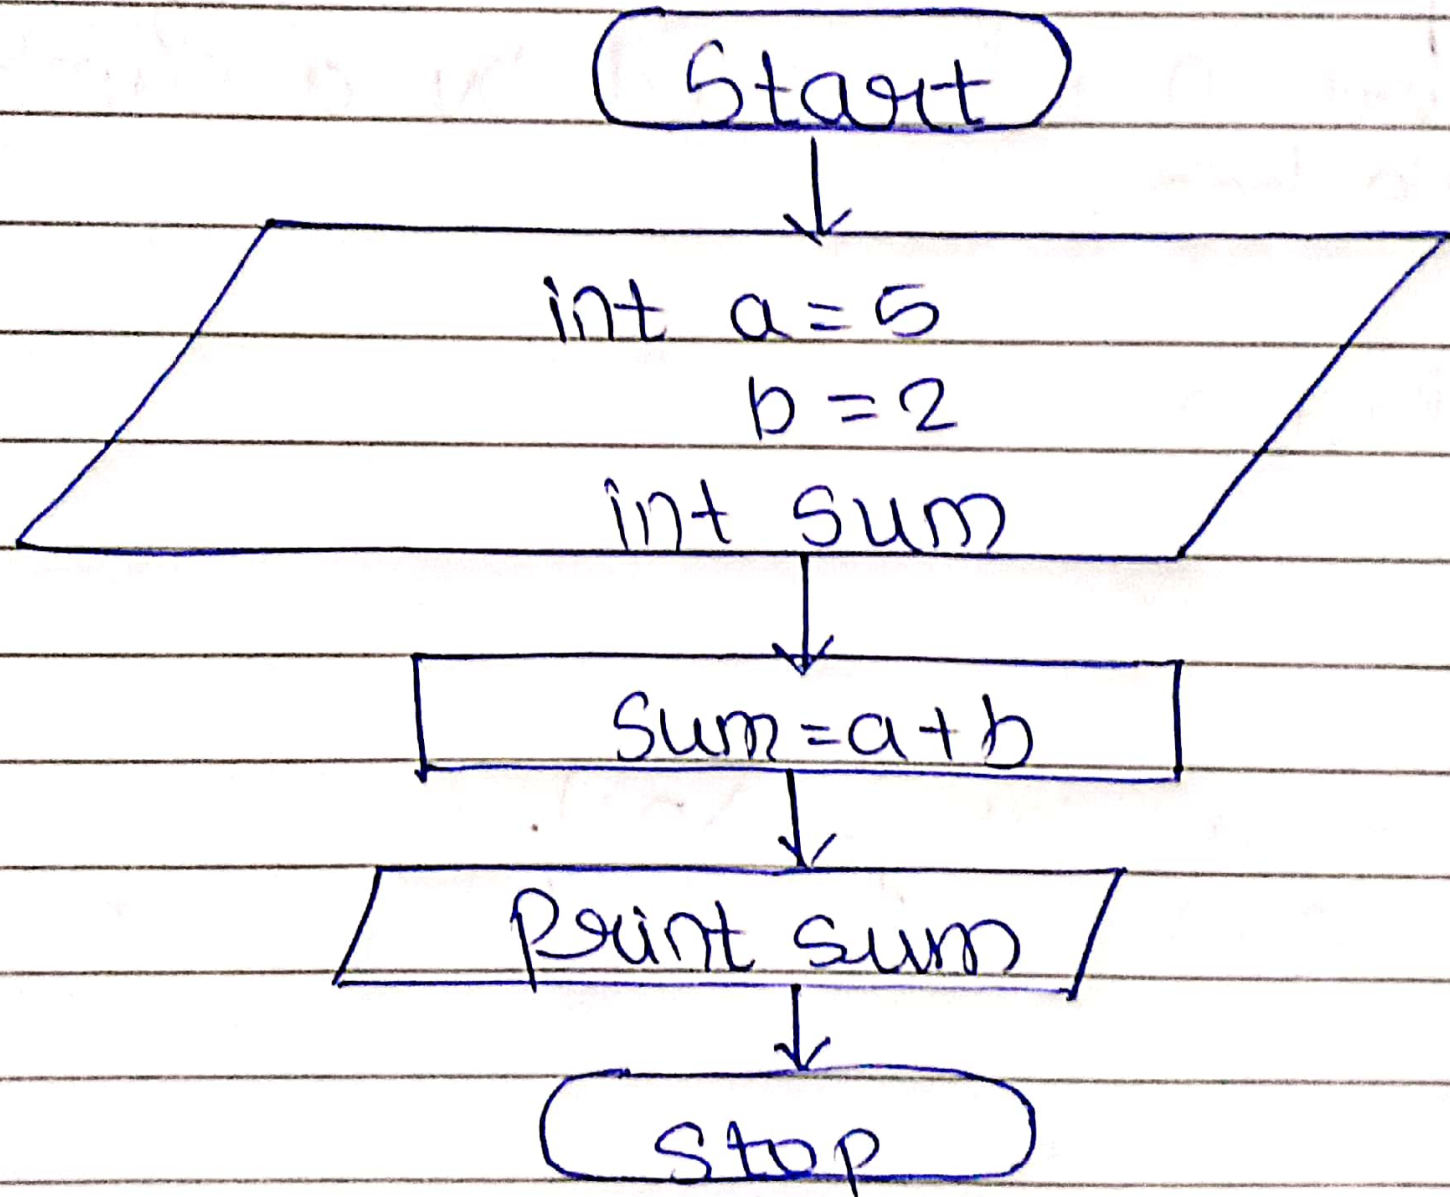 Start
int a = 5
b = 2
int sum
Sum = a + b
Print sum
Stop